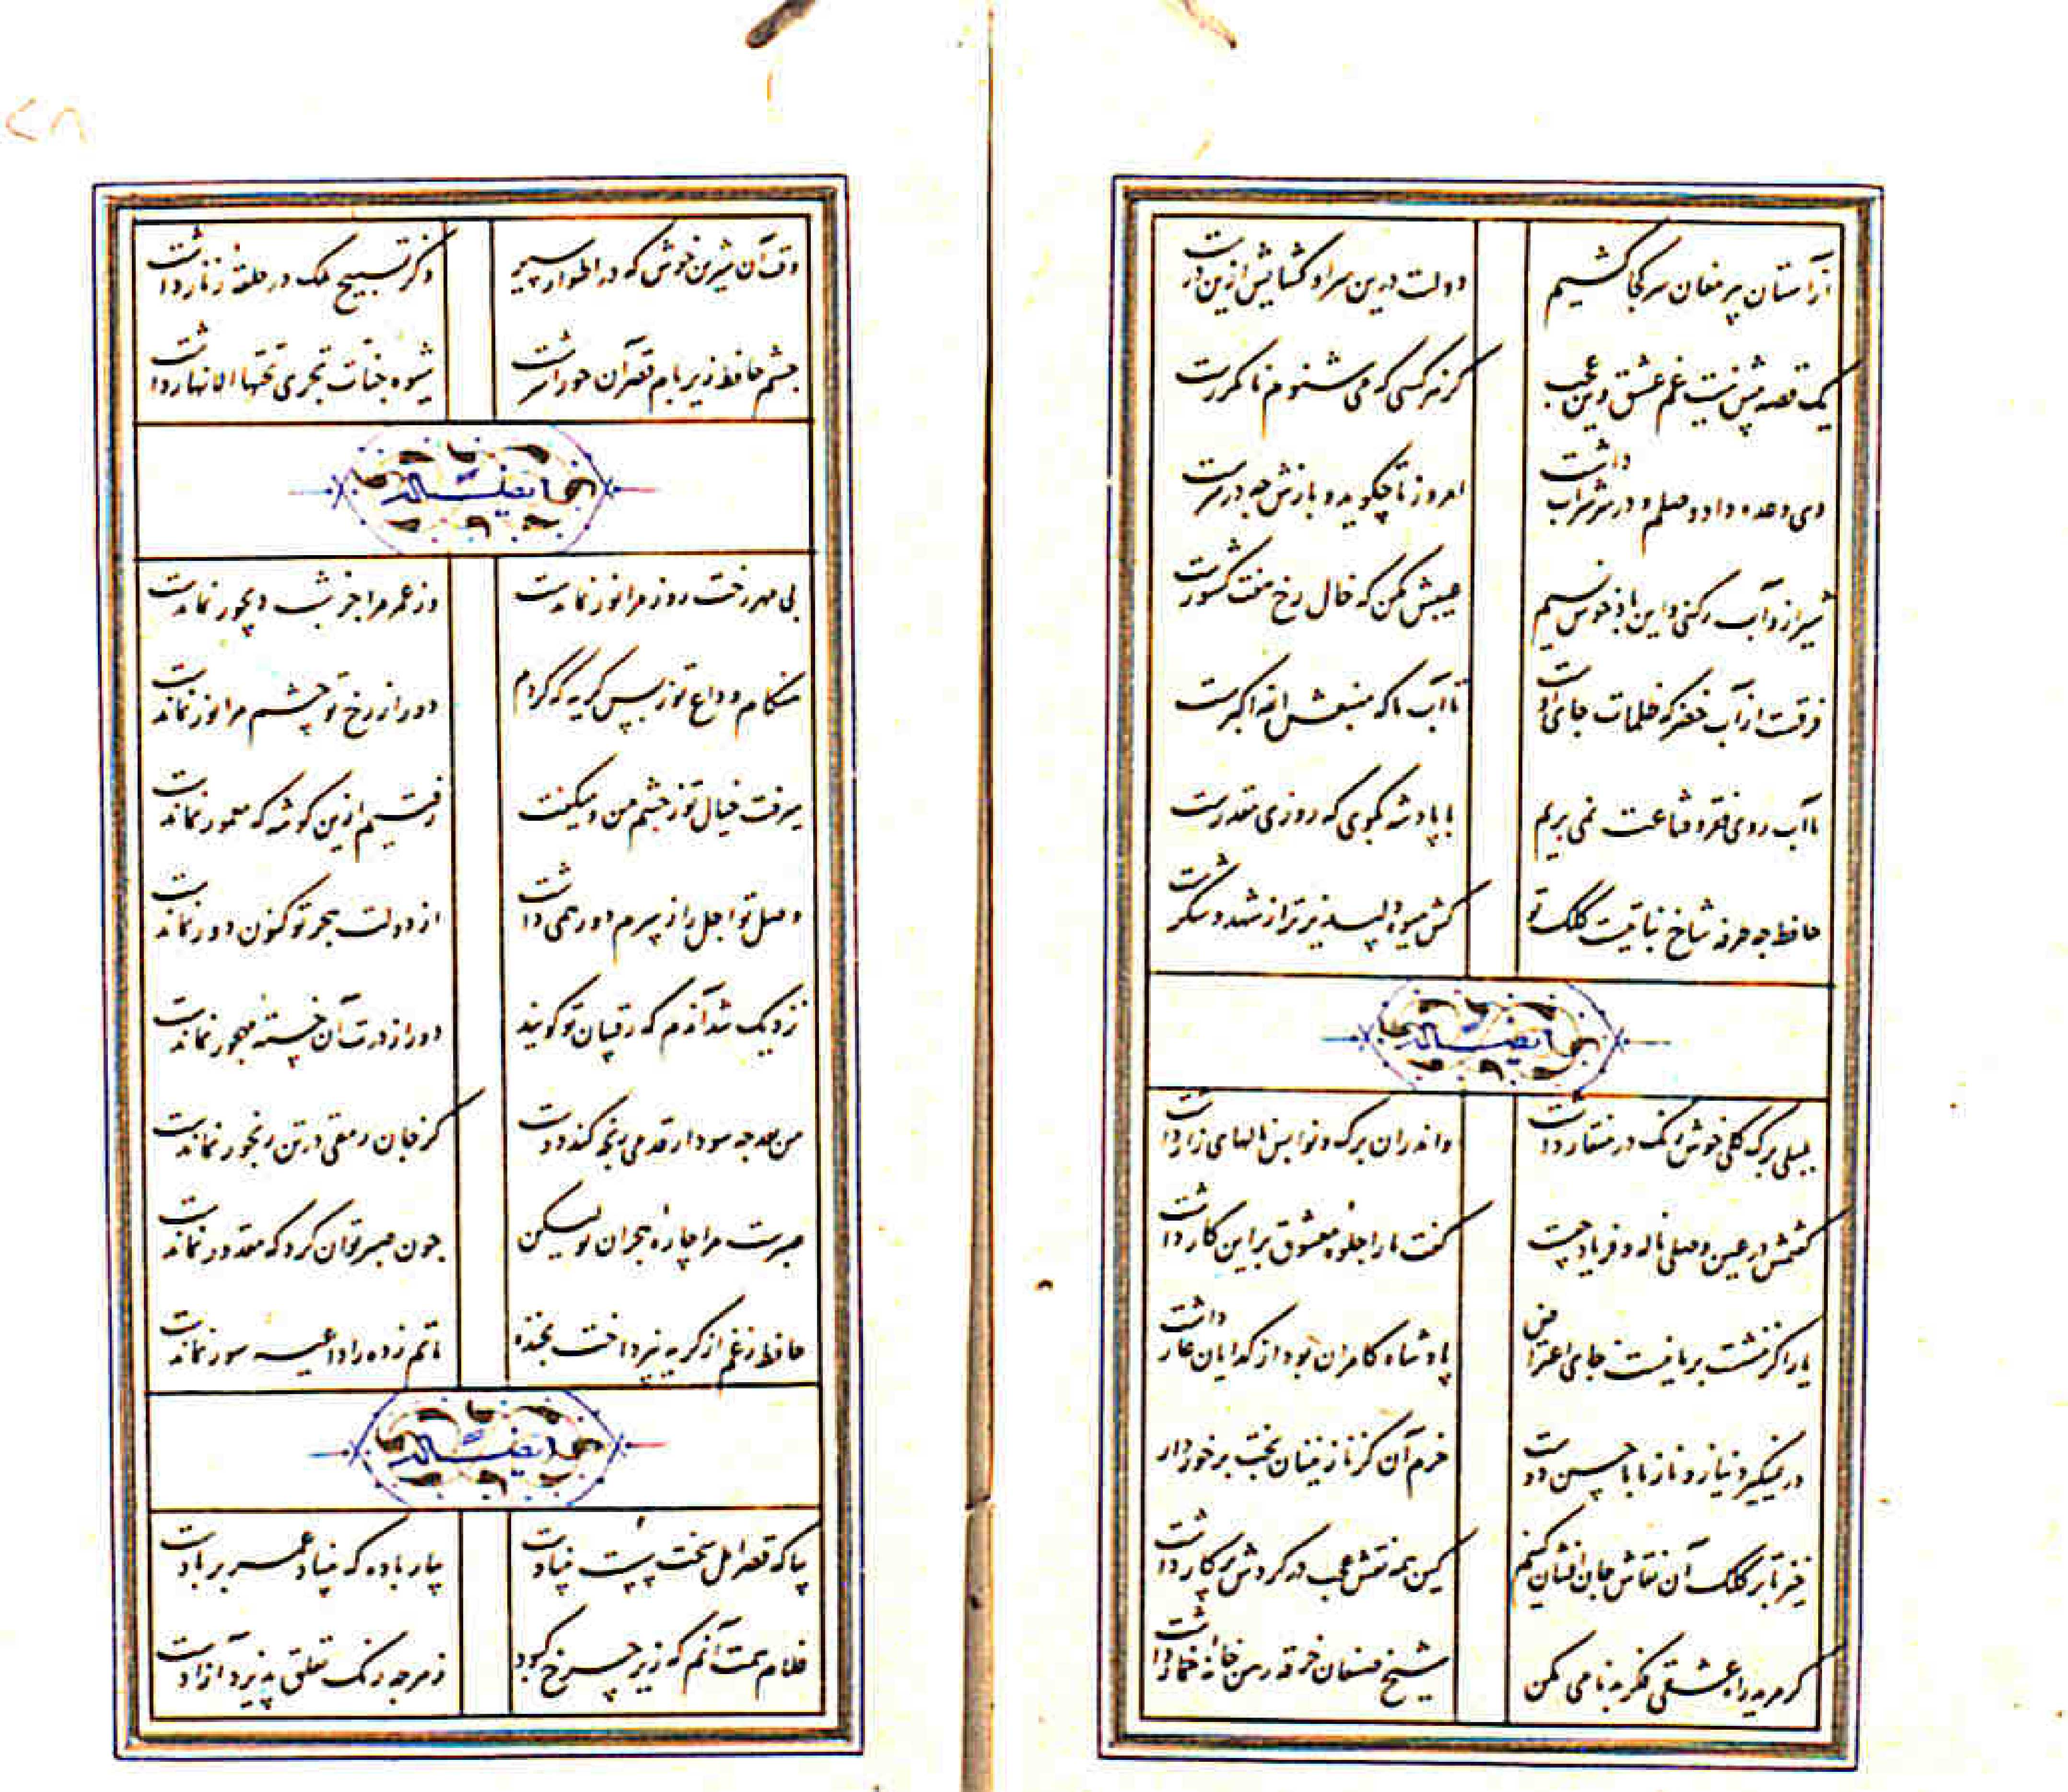 از آستان پیر مغان سر کجا کشیم
دولت درین سرا و کشایش ازین درست
یک قصه بیش نیست غم عشق وین عجب
کز هر کسی که می شنوم نامکررست
دی وعده داد وصلم و در سر شراب داشت
امروز تا چکوید و بازش چه در سرست
شیراز و آب رکنی و این باد خوش نسیم
عیبش مکن که خال رخ هفت کشورست
فرقت از آب خضر که ظلمات جای اوست
تا آب ما که منبعش الله اکبرست
ما آب روی فقر و قناعت نمی بریم
با پادشه بکوی که روزی مقدرست
حافظ چه طرفه شاخ نباتیست کلک تو
کش میوه دلپذیرتر از شهد و شکرست
ایضا له
بلبلی برک کلی خوش رنک در منقار داشت
واندران برک و نوا بس نالهای زار داشت
کفتمش در عین وصل این ناله و فریاد چیست
کفت ما را جلوه معشوق بر این کار داشت
یار اکر ننشست بر ما نیست جای اعتراض
پادشاه کامران بود از کدایان عار داشت
در نمیکیرد نیاز و ناز ما با حسن دوست
خرم آن کز نازنینان بخت برخوردار
خیز تا بر کلک آن نقاش جان افشان کنیم
کین همه نقش عجب در کردش پرکار داشت
کر مرید راه عشقی فکر بدنامی مکن
شیخ صنعان خرقه رهن خانه خمار داشت
وقت آن شیرین خوش که در اطوار سیر
ذکر تسبیح ملک در حلقه زنار داشت
چشم حافظ زیر بام قصر آن حور سرشت
شیوه جنات تجری تحتها الانهار داشت
ایضا له
بی مهر رخت روز مرا نور نماندست
وز عمر مرا جز شب دیجور نماندست
هنکام وداع تو ز بس کریه که کردم
دور از رخ تو چشم مرا نور نماندست
میرفت خیال تو ز چشم من و میکفت
رفتیم ازین کوشه که معمور نماندست
وصل تو اجل را ز سرم دور همی داشت
از دولت هجر تو کنون دور نماندست
نزدیک شد آندم که رقیبان تو کویند
دور از درت آن خسته مهجور نماندست
من بعد چه سود ار قدمی رنجه کند دوست
کز جان رمقی در تن رنجور نماندست
صبرست مرا چاره هجران تو لیکن
چون صبر توان کرد که مقدور نماندست
حافظ ز غم از کریه نپرداخت بخنده
ماتم زده را داعیه سور نماندست
ایضا له
بیا که قصر امل سخت سست بنیادست
بیار باده که بنیاد عمر بر بادست
غلام همت آنم که زیر چرخ کبود
ز هر چه رنک تعلق پذیرد آزادست